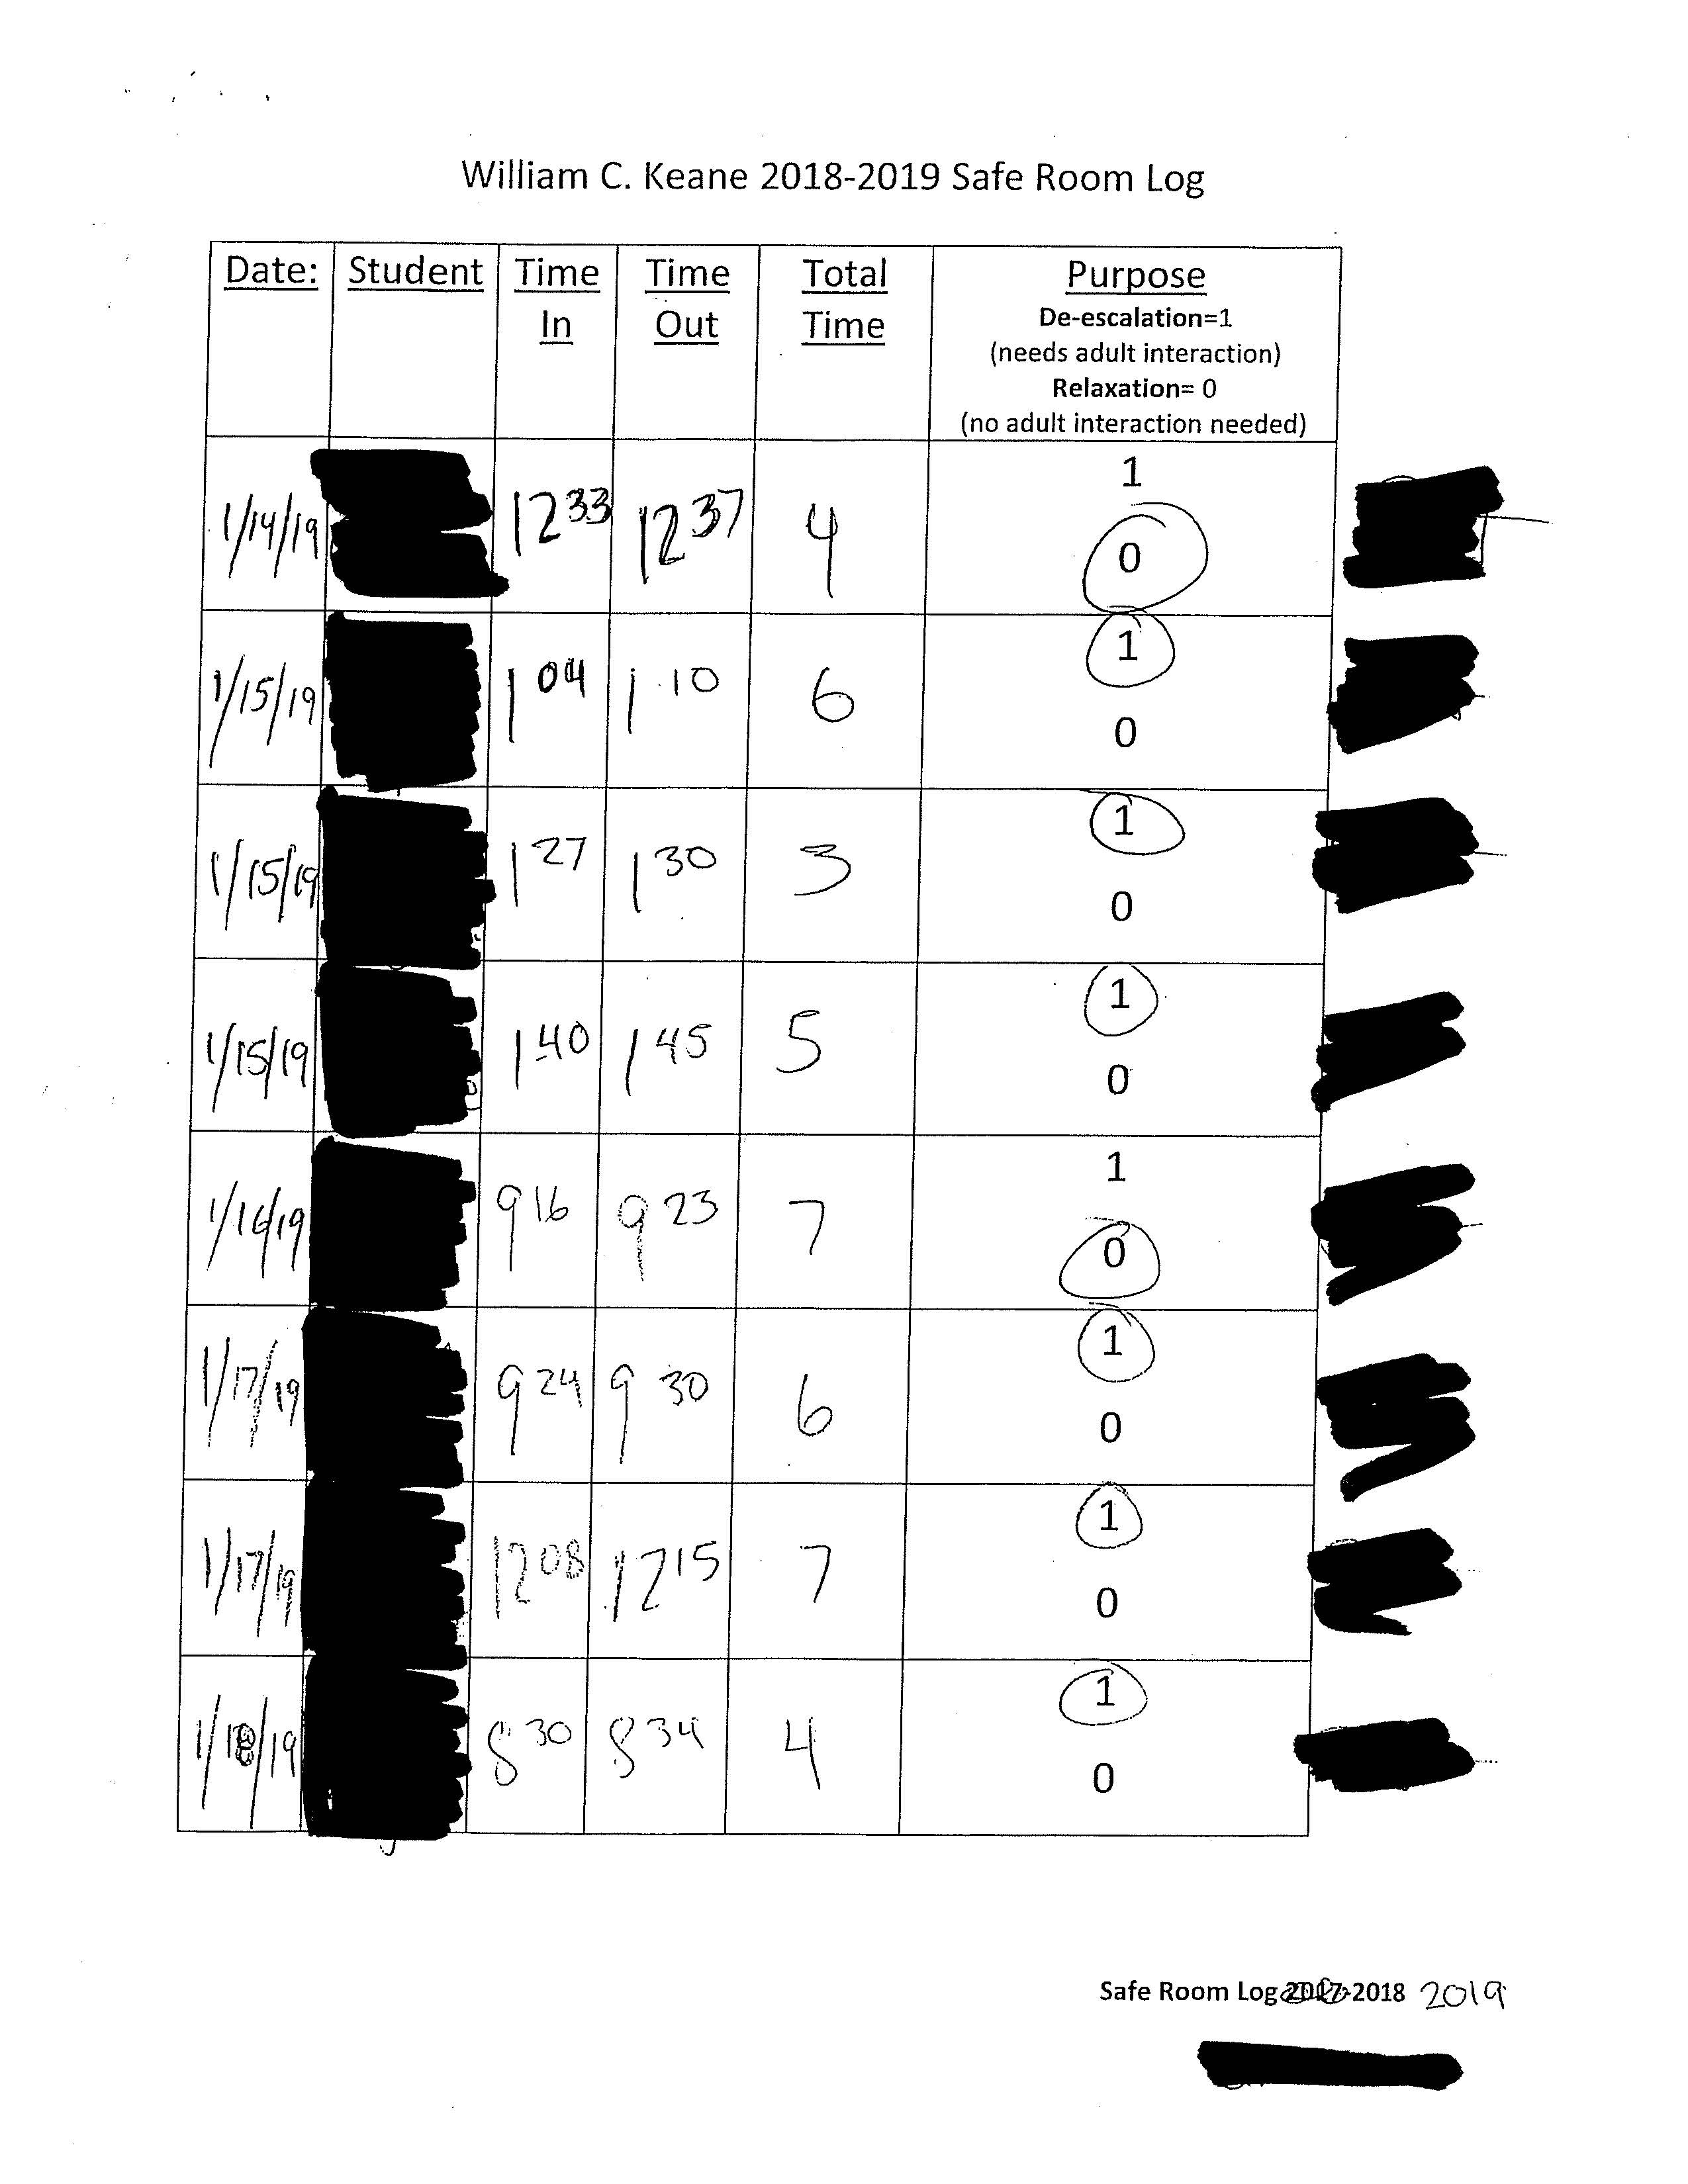 William C. Keane 2018-2019 Safe Room Log
Date: Student Time In Time Out Total Time Purpose
De-escalation=1
(needs adult interaction)
Relaxation= 0
(no adult interaction needed)
1/14/19 12 33 12 37 4 1 0
1/15/19 1 04 1 10 6 1 0
1/15/19 1 27 1 30 3 1 0
1/15/19 1 40 1 45 5 1 0
1/16/19 9 16 9 23 7 1 0
1/17/19 9 24 9 30 6 1 0
1/17/19 12 08 12 15 7 1 0
1/18/19 8 30 8 34 4 1 0
Safe Room Log 2017-2018 2019